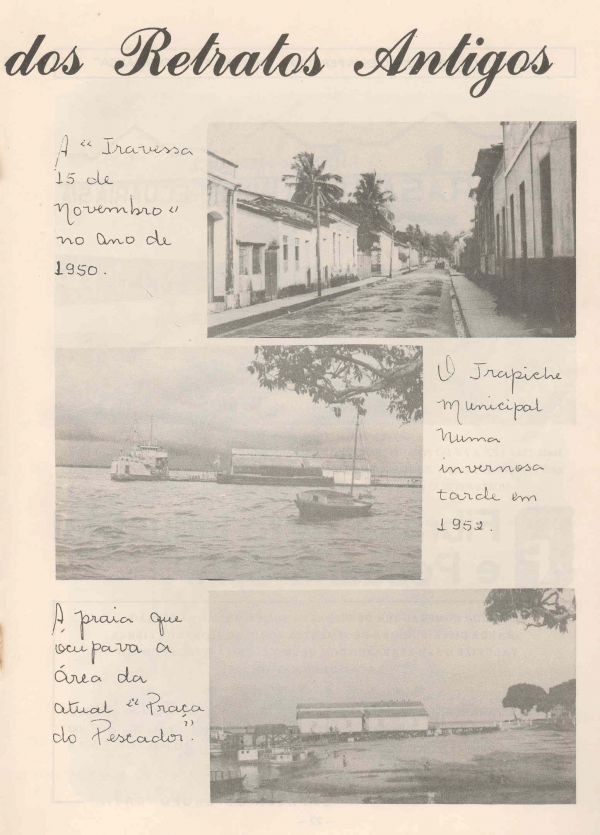 dos Retratos Antigos
A "Travessa
15 de
Novembro"
no ano de
1950.
O Trapiche
Municipal
Numa
invernosa
tarde em
1952.
A praia que
ocupava a
Área da
atual "Praça
do Pescador".